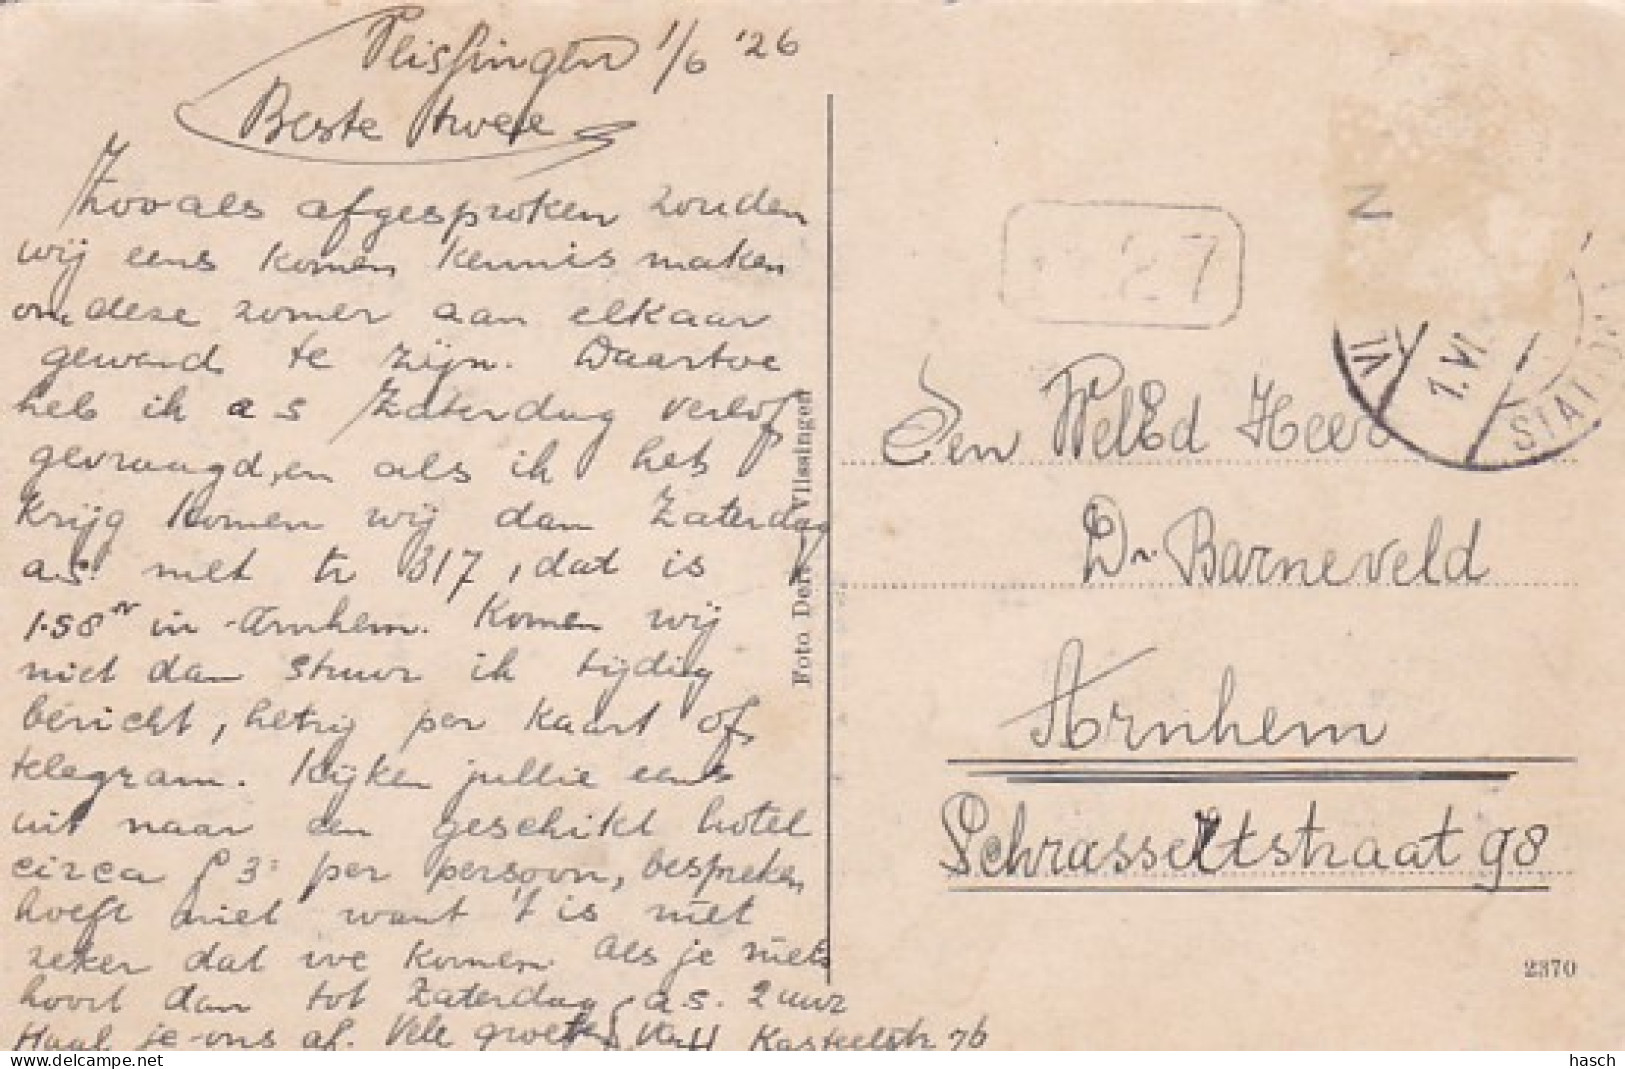 Vlissingen 1/6 '26
Beste twee
Zooals afgesproken zouden
wij eens komen kennis maken
om deze zomer aan elkaar
gewend te zijn. Daartoe
heb ik a s Zaterdag verlof
gevraagd, en als ik het
krijg komen wij dan Zaterdag
a.s. met tr 317, dat is
1.58 nr in Arnhem. Komen wij
niet dan stuur ik tijdig
bericht, hetzij per kaart of
telegram. Kijken jullie eens
uit naar een geschikt hotel
circa f 3: per persoon, bespreken
hoeft niet want 't is niet
zeker dat we komen. Als je niets
hoort dan tot Zaterdag a.s. 2 uur
Haal je ons af. Vele groeten Kasteelstr 76
Foto Dert Vlissingen
27
N
VL
1.VI
STATION
Den WelEd Heer
Dr. Barneveld
Arnhem
Schrassertstraat 98
2370
hasch